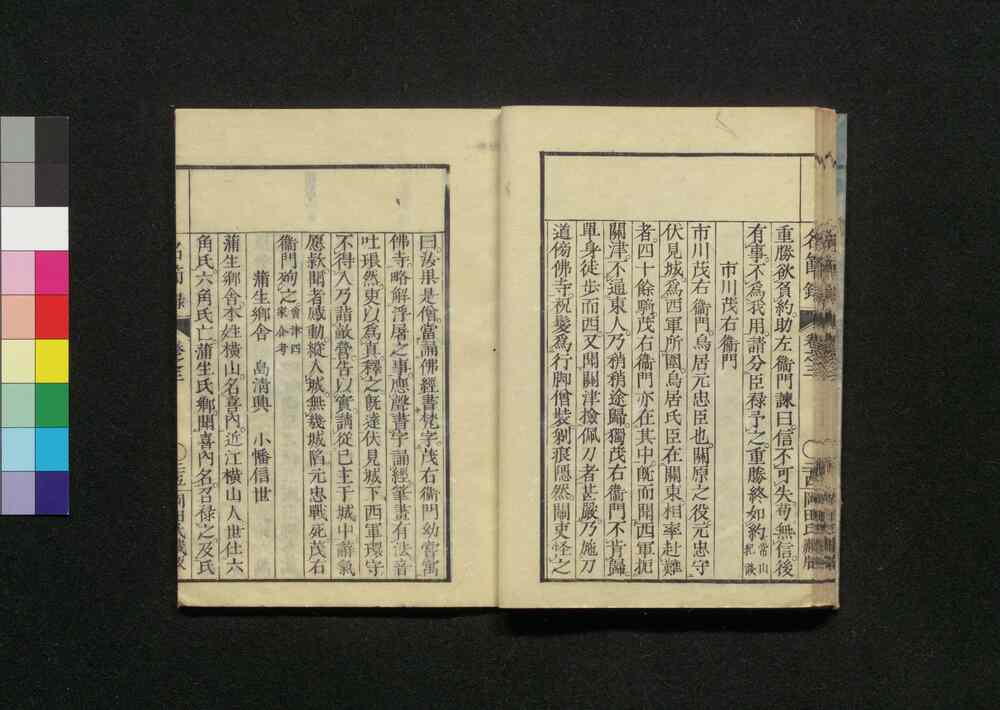 重勝欲負約。助左衞門諫曰。信不可失。苟無信。後
有事。不爲我用。請分臣祿予之。重勝終如約。常山紀談
市川茂右衞門
市川茂右衞門。鳥居元忠臣也。關原之役。元忠守
伏見城。爲西軍所圍。鳥居氏臣在關東。相率赴難
者。四十餘騎。茂右衞門亦在其中。旣而聞西軍扼
關津。不通東人。乃稍稍途歸。獨茂右衞門不肯歸。
單身徒步而西。又聞關津撿佩刀者甚嚴。乃施刀
道傍佛寺。祝髮爲行脚僧裝。剃痕隱然。關吏怪之
曰。汝果是僧。當誦佛經書梵字。茂右衞門幼嘗寓
佛寺。略解浮屠之事。應聲書字誦經。筆畫有法。音
吐琅然。吏以爲眞。釋之。旣達伏見城下。西軍環守
不得入。乃詣敵營。告以實。請從己主于城中。辭氣
愿款。聞者感動。縱入城。無幾城陷。元忠戰死。茂右
衞門殉之。會津四家合考
蒲生鄕舍 島淸興 小幡信世
蒲生鄕舍。本姓橫山。名喜內。近江橫山人。世仕六
角氏。六角氏亡。蒲生氏鄕聞喜內名。召祿之。及氏
名節錄 卷之三